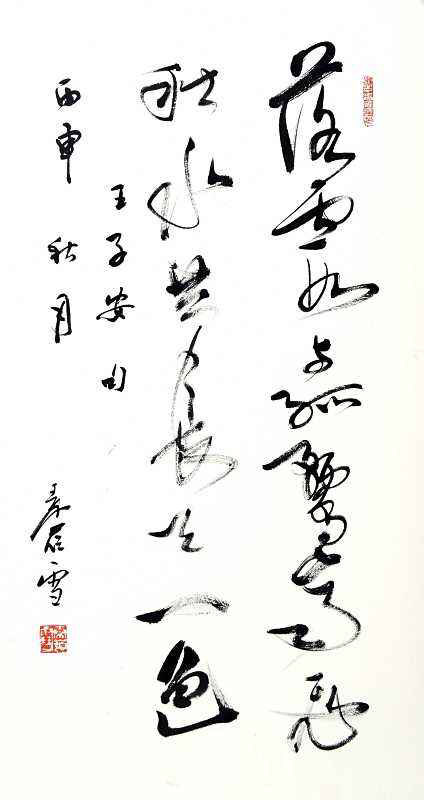 落霞与孤鶩齊飛
秋水共長天一色
王子安句
丙申秋月 雪